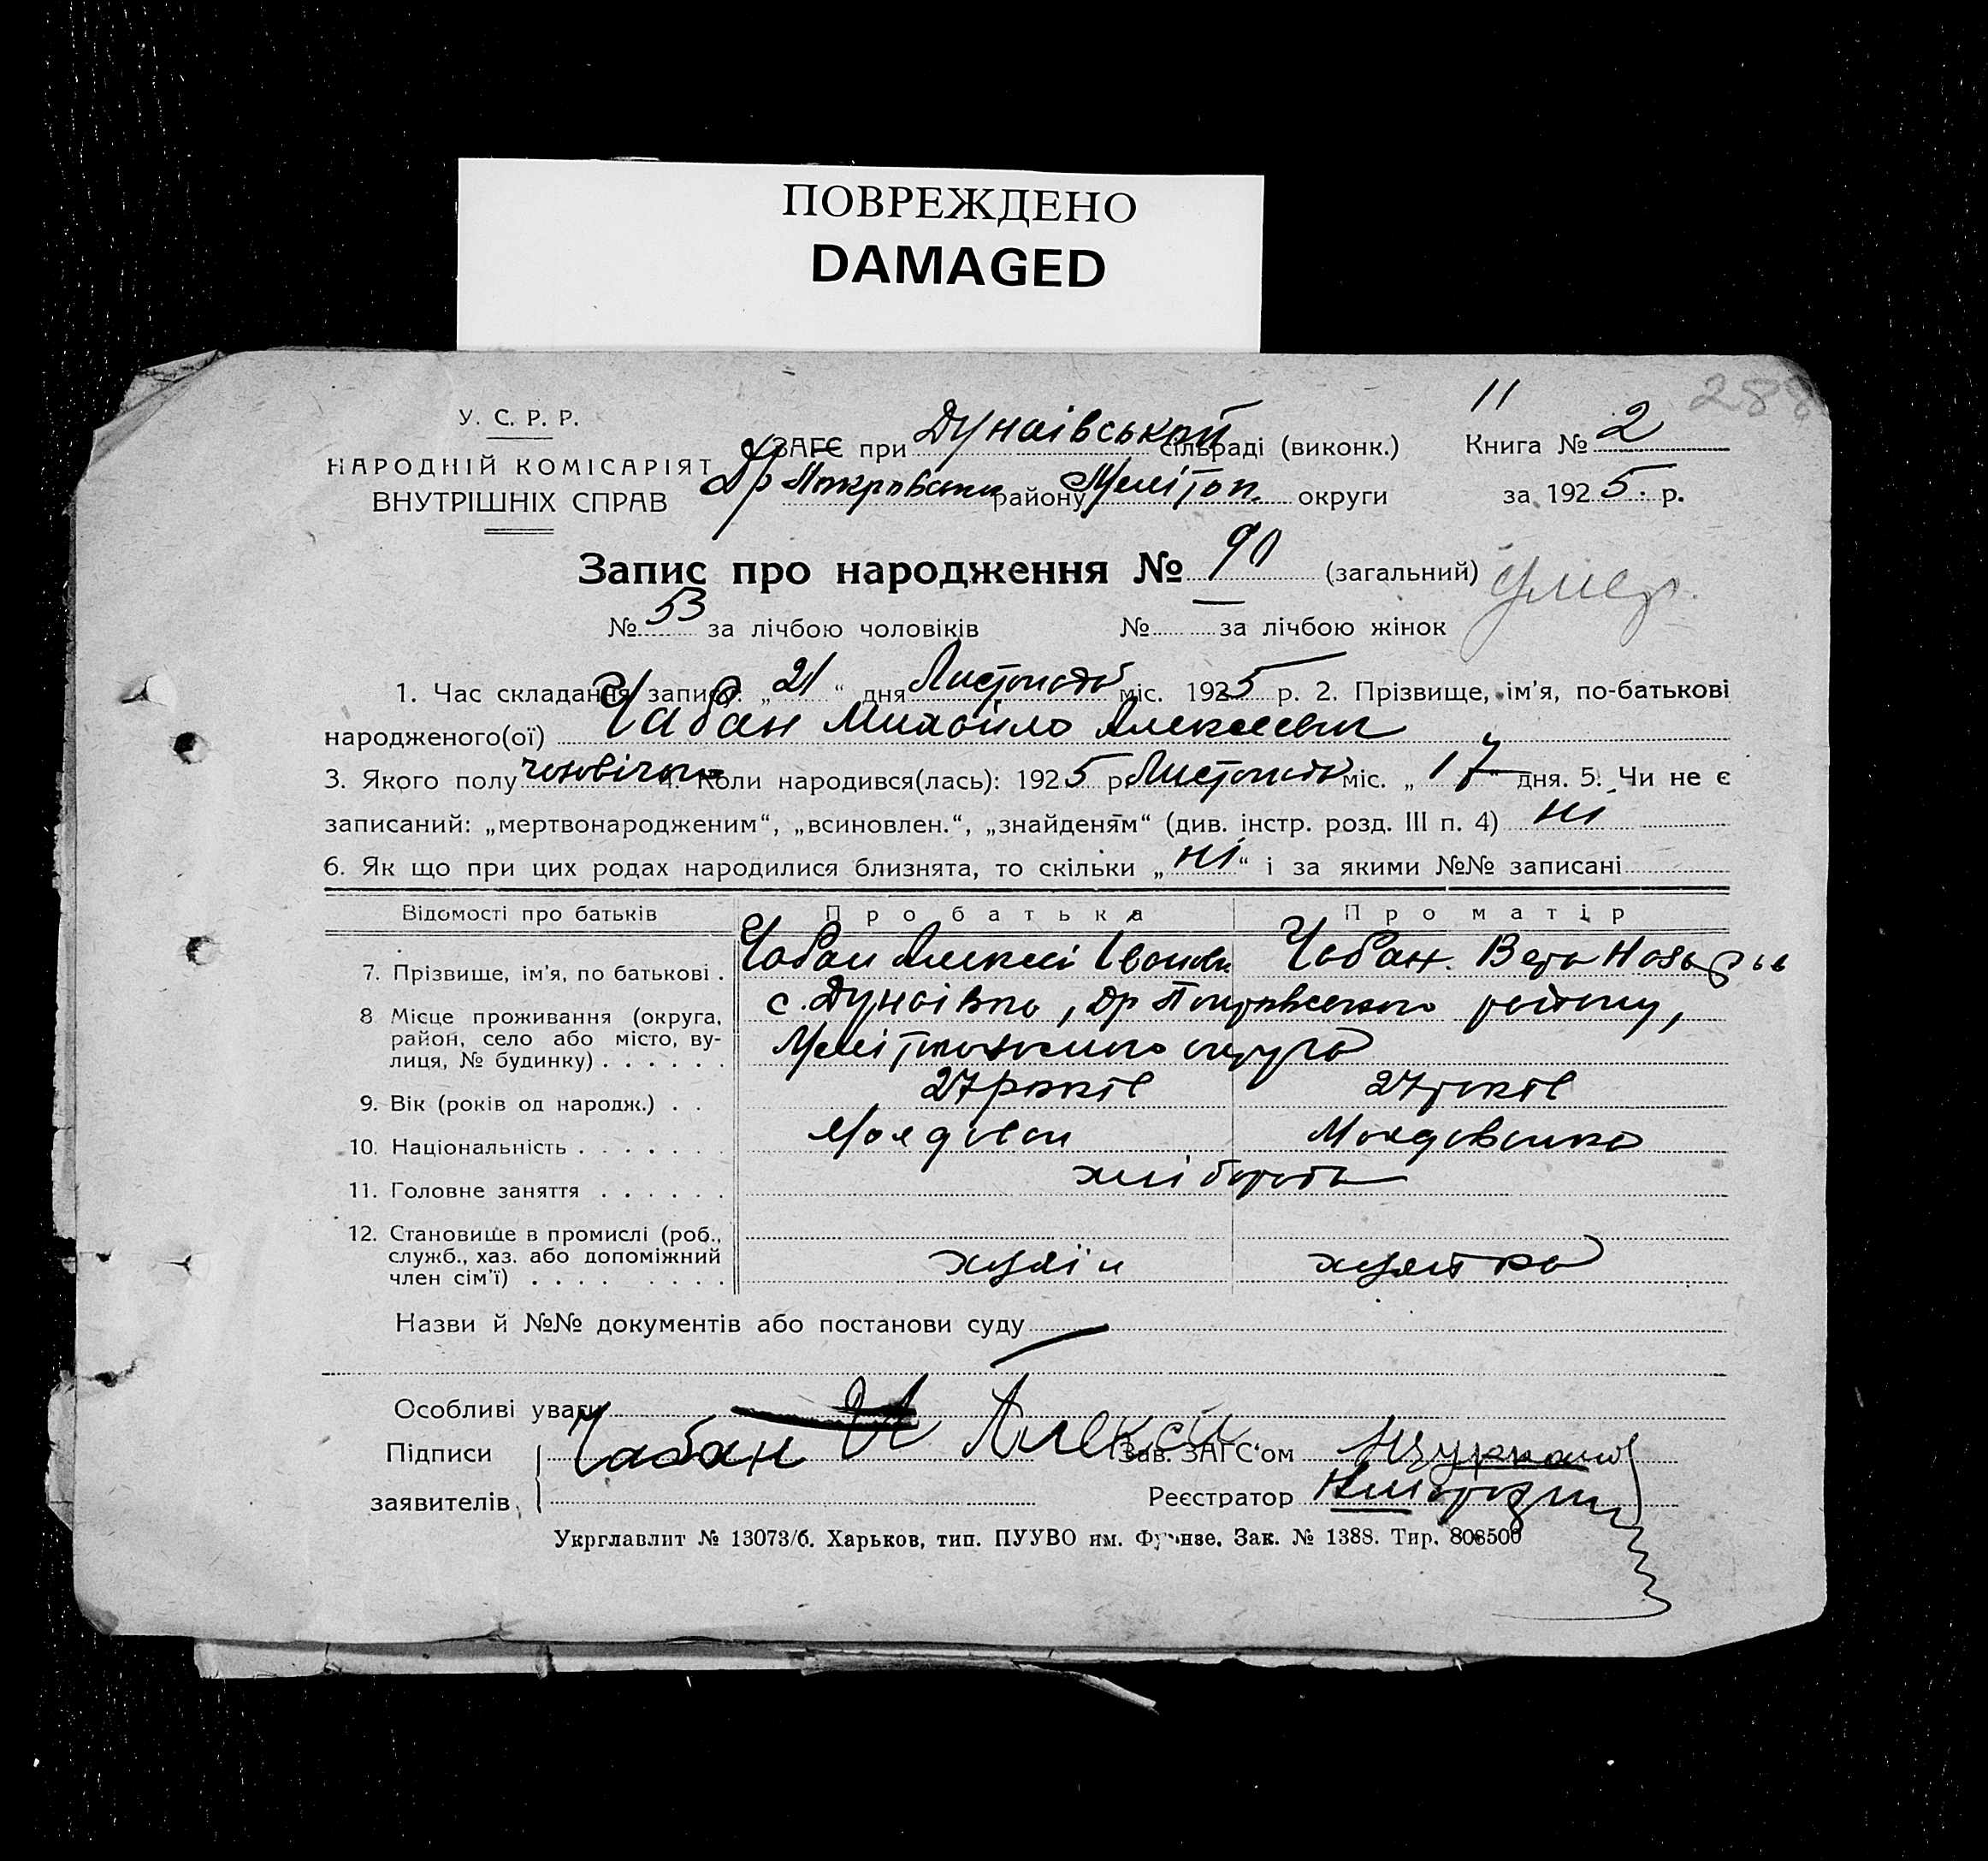 ПОВРЕЖДЕНО
DAMAGED
11
288
У. С. Р. Р.
НАРОДНІЙ КОМІСАРІЯТ
ВНУТРІШНІХ СПРАВ
ЗАГС при Дунаівській сільраді (виконк.) Книга № 2
Др Покровськ району МеліТоп. округи за 1925. р.
Запис про народження № 90 (загальний) умер.
№ 53 за лічбою чоловіків № — за лічбою жінок
1. Час складання запису: „21“ дня Листопада міс. 1925 р. 2. Прізвище, ім’я, по-батькові
народженого(ої) Чабан Михайло Алексеевич
3. Якого полу чоловічого 4. Коли народився(лась): 1925 р. Листопада міс. „17“ дня. 5. Чи не є
записаний: „мертвонародженим“, „всиновлен.“, „знайденям“ (див. інстр. розд. III п. 4) ні
6. Як що при цих родах народилися близнята, то скільки „ні“ і за якими №№ записані
Відомості про батьків Про батька Про матір
7. Прізвище, ім’я, по батькові . Чабан Алексей Іванов. Чабан. Вера Назарьев
8 Місце проживання (округа, район, село або місто, вулиця, № будинку) . . . . . . с. Дунаівка, Др Покровського району,
Мелітопольського округа
9. Вік (років од народж.) . . 27 років 27 років
10. Національність . . . . . . . Молдован Молдованка
11. Головне заняття . . . . . . хлібороби
12. Становище в промислі (роб., служб., хаз. або допоміжний член сім’ї) . . . . . . . . хазяїн хазяйка
Назви й №№ документів або постанови суду —
Особливі уваги
Підписи Чабан Алексей Зав. ЗАГС‘ом
заявителів, Реєстратор
Укрглавлит № 13073/б. Харьков, тип. ПУУВО им. Фрунзе. Зак. № 1388. Тир. 808500